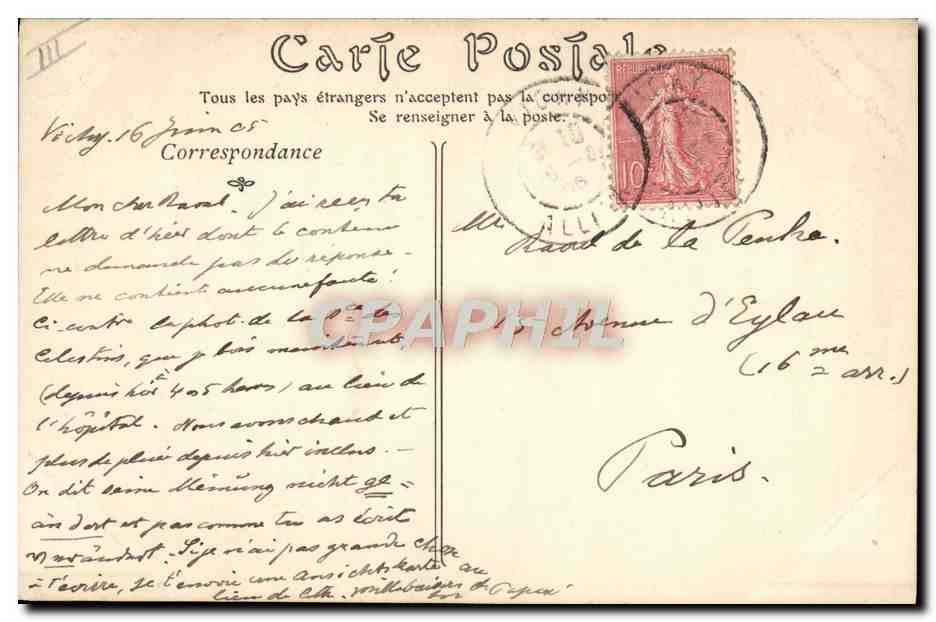 III
Carte Postale
Tous les pays étrangers n'acceptent pas la correspo
Se renseigner à la poste.
RÉPUBLIQUE
10
ALLI
Vichy, 16 Juin 05
Correspondance
Mon cher Raoul. J'ai reçu ta
lettre d'hier dont le contenu
ne demande pas de réponse.
Elle ne contient aucune faute!
Ci-contre la phot. de la Sce des
Celestins, que je bois maintenant,
(depuis hier 4 05 heures) au lieu de
l'hôpital. Nous avons chaud et
plus de pluie depuis hier inclus. -
On dit seine Meinung nicht ge=
ändert et pas comme tu as écrit
verändert. Si je n'ai pas grande chose
à t'écrire, je t'envoie une Ansichtskarte au
lieu de
Papa
Mr
Raoul de la Penha.
15 Avenue d'Eylau
(16me arr.)
Paris.
CPAPHIL